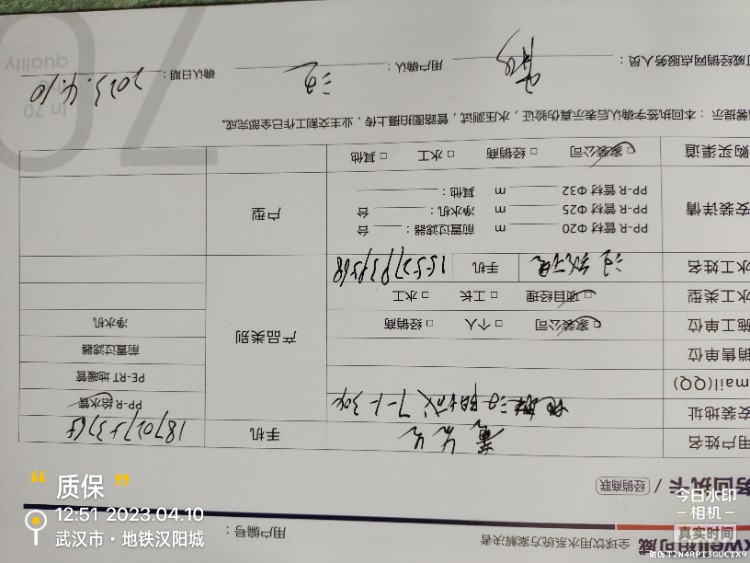 kwell伟可威
全球饮用水系统方案解决者
用户编号：
务回执卡 / 经销商联
用户姓名
黄先生
手机
安装地址
PP-R 给水管
mail(QQ)
PE-RT 地暖管
销售单位
产品类别
前置过滤器
施工单位
□ 家装公司 □ 个人 □ 经销商
净水机
水工类型
□ 项目经理 □ 工长 □ 水工
水工姓名
手机
安装详情
PP-R 管材 Φ20 m 前置过滤器： 台
PP-R 管材 Φ25 m 净水机： 台
PP-R 管材 Φ32 m 其他：
户型
购买渠道
□ 家装公司 □ 经销商 □ 水工 □ 其他
提示：本回执签字确认后表示真伪验证，水压测试，管路图拍摄上传，业主交割工作已全部完成。
威经销网点服务人员：
用户确认：
确认日期：2023.4.10
In 70
quality
70
“质保”
12:51 2023.04.10
武汉市·地铁汉阳城
今日水印
-相机-
真实时间
防伪T2N4RPT3GUCTX9